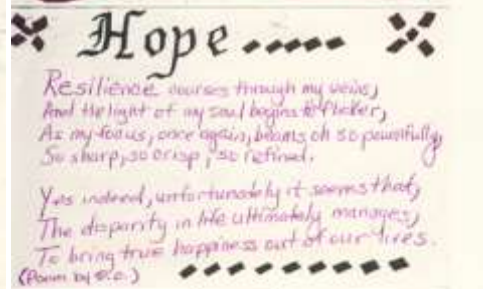 Hope.....
Resilience courses through my veins,
And the light of my soul begins to flicker,
As my focus, once again, beams oh so powerfully,
So sharp, so crisp, so refined.
Yes indeed, unfortunately it seems that,
The disparity in life ultimately manages,
To bring true happiness out of our lives.
(Poem by